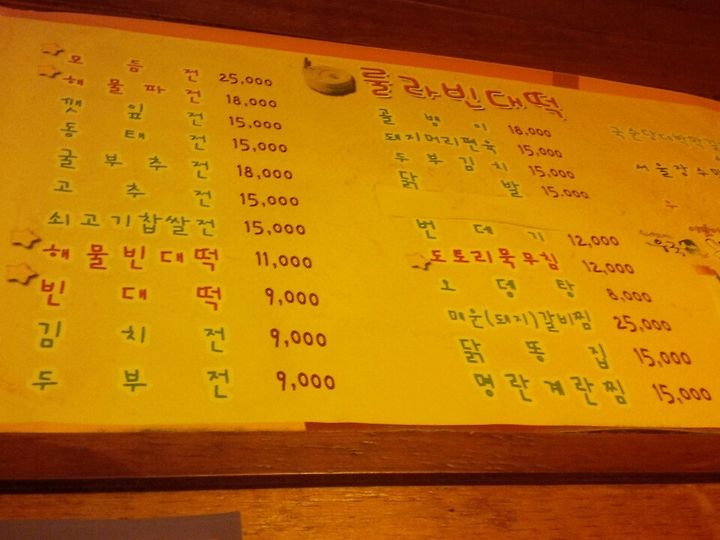 모듬전 25,000
해물파전 18,000
깻잎전 15,000
동태전 15,000
굴부추전 18,000
고추전 15,000
쇠고기찹쌀전 15,000
해물빈대떡 11,000
빈대떡 9,000
김치전 9,000
두부전 9,000
룰라빈대떡
골뱅이 18,000
돼지머리편육 15,000
두부김치 15,000
닭발 15,000
번데기 12,000
도토리묵무침 12,000
오뎅탕 8,000
매운(돼지)갈비찜 25,000
닭똥집 15,000
명란계란찜 15,000
서울장수